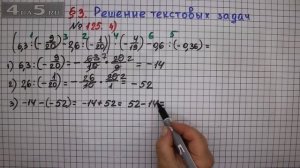 4.5.ru
§ 3. Решение текстовых задач
№ 125. 4)
(6,3 : (-9/20) - 26 : (-1/20)) · (-4/19) - 0,6 : (-0,36) =
1) 6,3 : (-9/20) = - 63/10 · 20/9 = -14
2) 26 : (-1/20) = - 26/1 · 20/1 = - 52
3) -14 - (-52) = -14 + 52 = 52 - 14 =